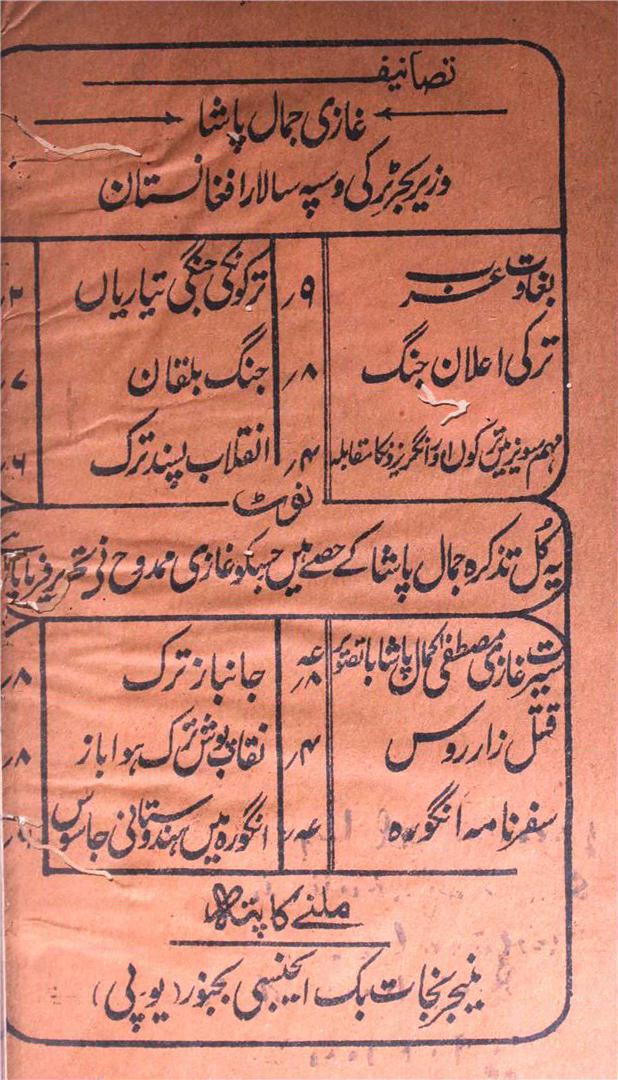 تصانیف
غازی جمال پاشا
وزیر بحر ٹرکی و سپہ سالار افغانستان
بغاوت عرب ۹؍ ترکونکی جنگی تیاریاں
ترکی اعلان جنگ ۸؍ جنگ بلقان ۷؍
مہم سویز میں ترکوں اور انگریزونکا مقابلہ ۴؍ انقلاب پسند ترک ۶؍
نوٹ
یہ کل تذکرہ جمال پاشا کے حصے ہیں جسکو غازی ممدوح نے تحریر فرمایا ہے
سیرت غازی مصطفی کمال پاشا باتصویر جانباز ترک ۸؍
قتل زار روس ۴؍ نقاب پوش ترک ہواباز ۸؍
سفرنامہ انگورہ انگورہ میں ہندوستانی جاسوس
ملنے کا پتہ
منیجر نجات بک ایجنسی بجنور (یو پی)